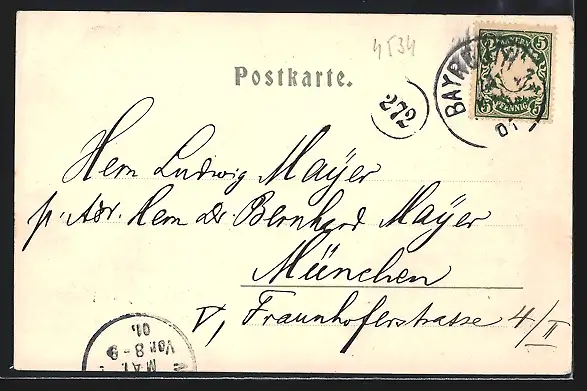 4534
Postkarte.
272
BAYREUTH
01
BAYERN
5 5
5 PFENNIG 5
Herrn Ludwig Mayer
p. Adr. Herrn Dr. Bernhard Mayer
München
V, Fraunhoferstrasse 4/II
MAI
Vor. 8-9
01.